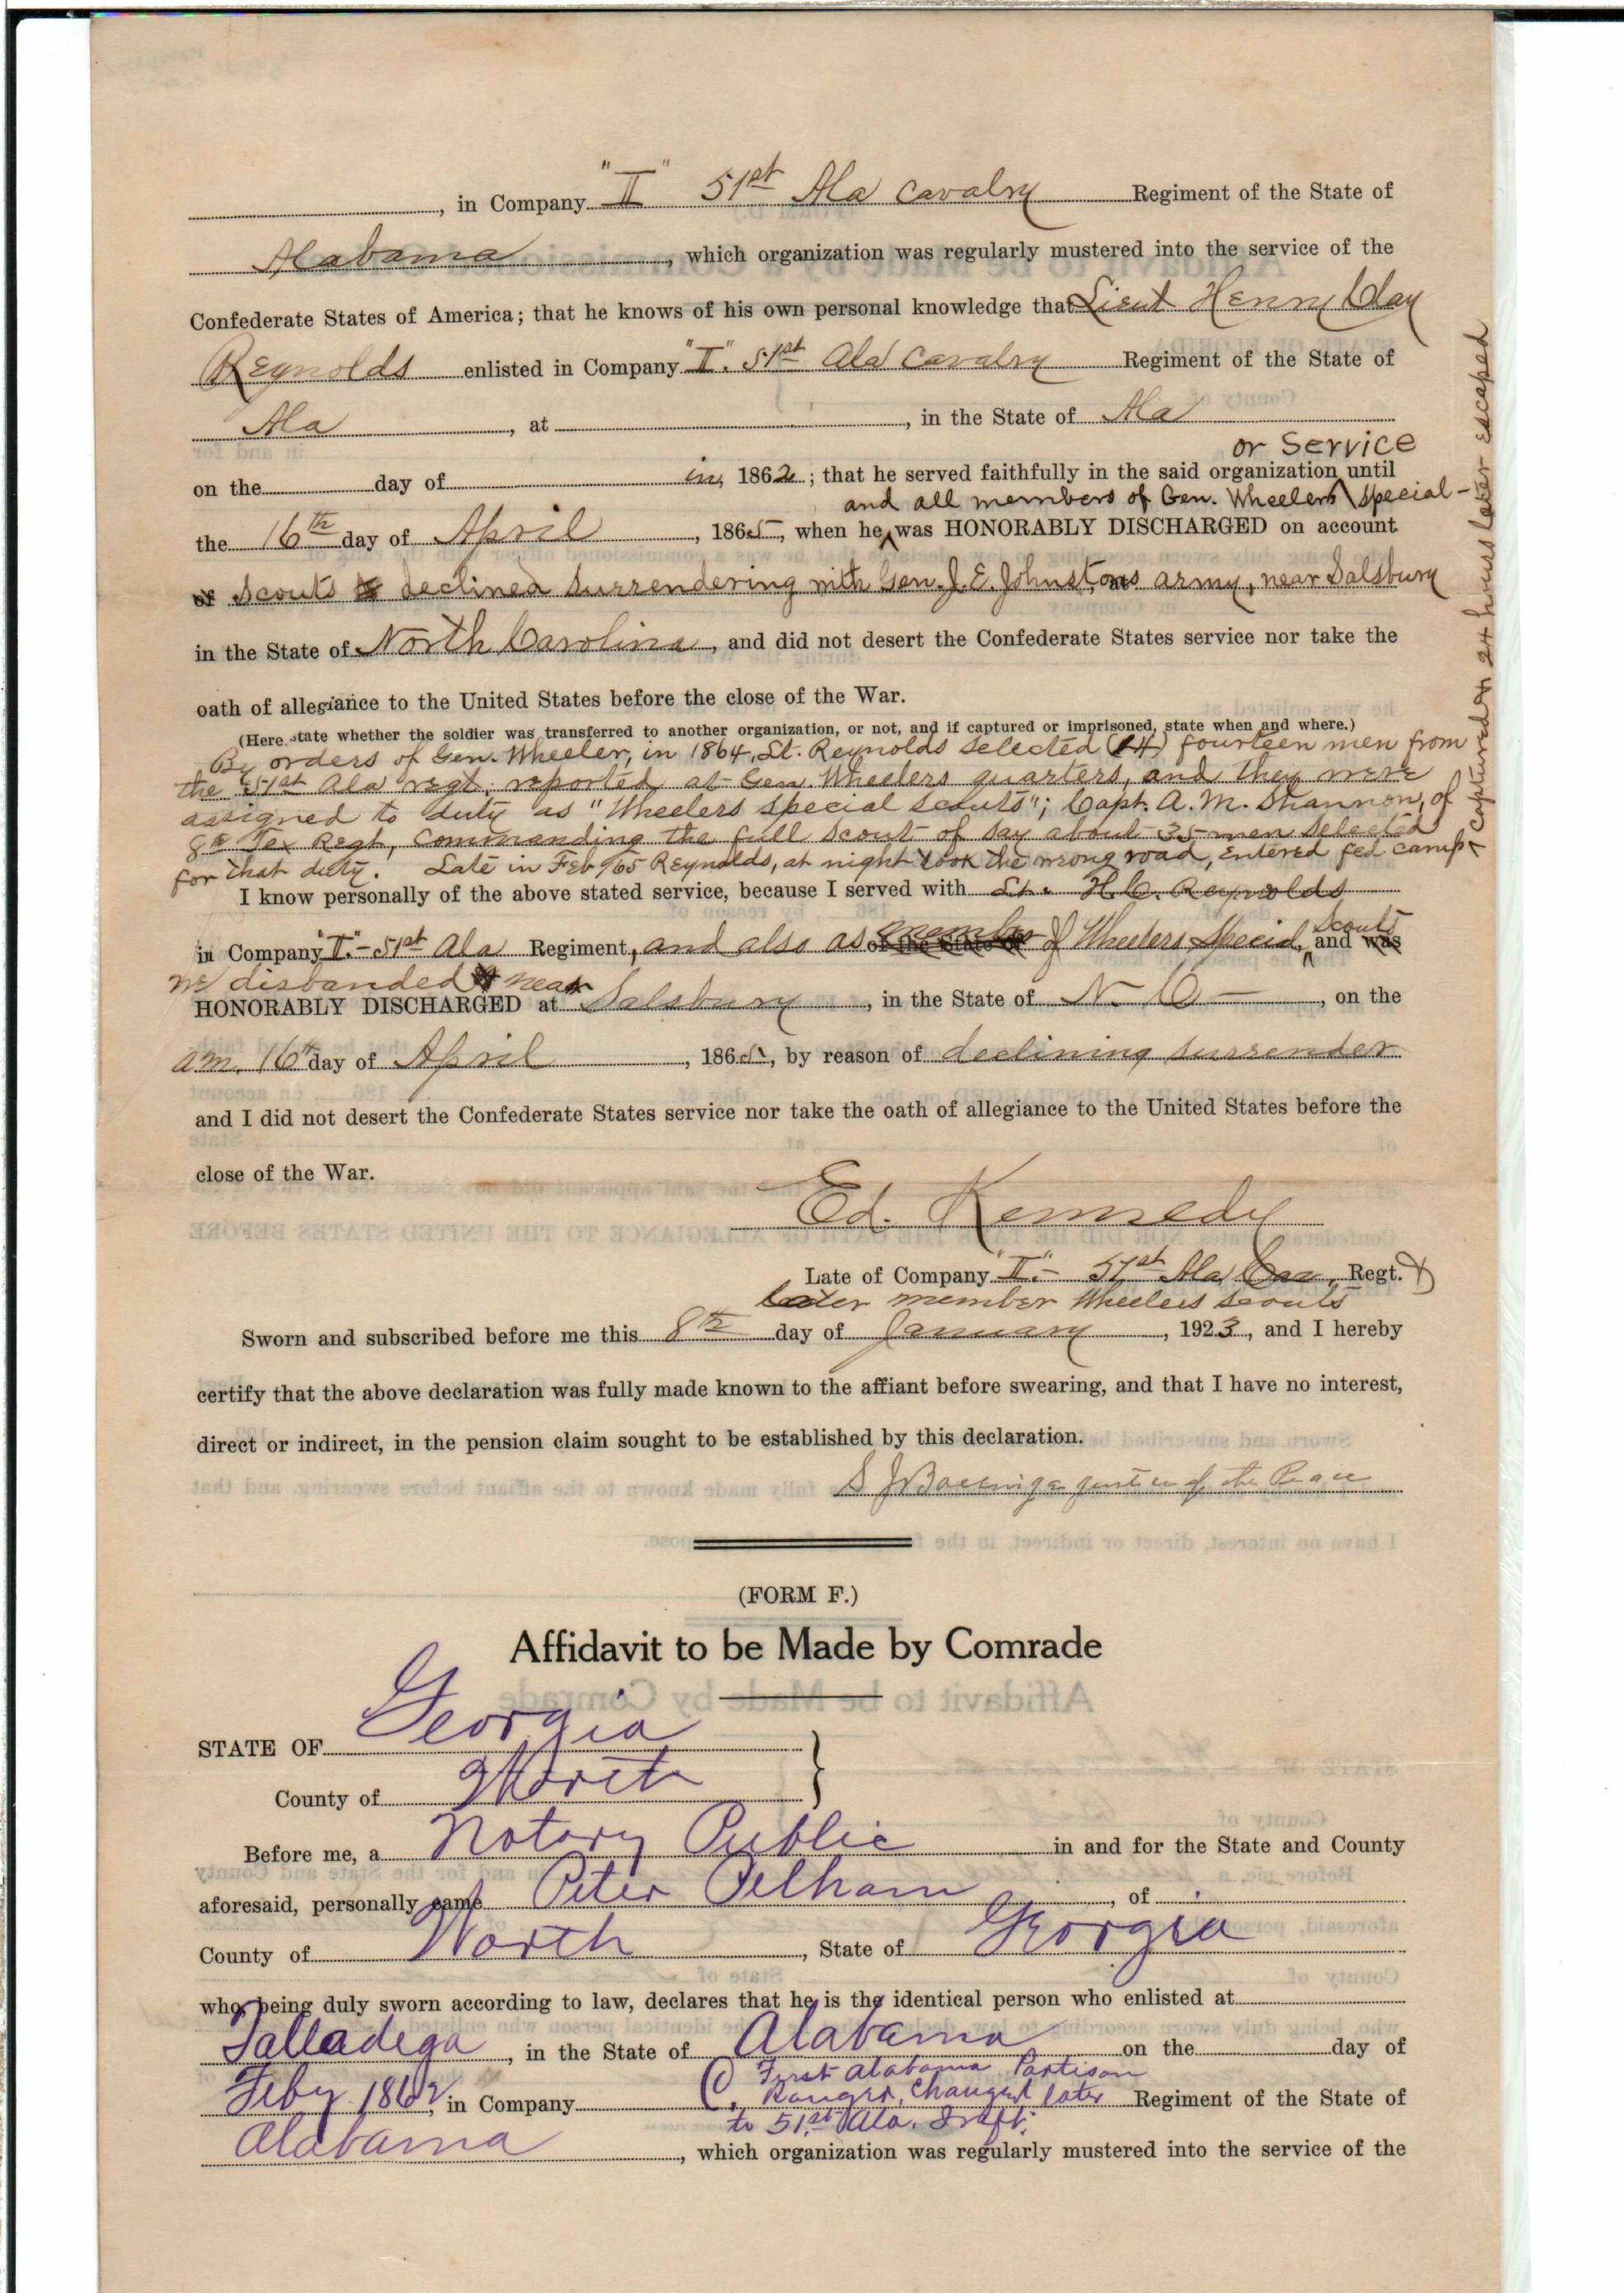 , in Company "I" 51st Ala Cavalry Regiment of the State of
Alabama, which organization was regularly mustered into the service of the
Confederate States of America; that he knows of his own personal knowledge that Lieut Henry Clay
Reynolds enlisted in Company "I". 51st Ala Cavalry Regiment of the State of
Ala, at , in the State of Ala
or Service
on the day of in, 1862; that he served faithfully in the said organization until
and all members of Gen. Wheelers special-
the 16th day of April, 1865, when he was HONORABLY DISCHARGED on account
of Scouts declined surrendering with Gen. J. E. Johnstons army, near Salsbury
in the State of North Carolina, and did not desert the Confederate States service nor take the
oath of allegiance to the United States before the close of the War.
(Here state whether the soldier was transferred to another organization, or not, and if captured or imprisoned, state when and where.)
By orders of Gen. Wheeler, in 1864, Lt. Reynolds selected (14) fourteen men from
the 51st Ala regt, reported at Gen. Wheelers quarters, and they were
assigned to duty as "Wheelers special scouts"; Capt. A. M. Shannon, of
8th Tex Regt, commanding the full scout of say about 35 men selected
for that duty. Late in Feb/65 Reynolds, at night took the wrong road, entered fed camp
& captured & 24 hours later escaped
I know personally of the above stated service, because I served with Lt. H. C. Reynolds
in Company "I."- 51st Ala Regiment, and also as member of the State of of Wheelers Special Scouts, and was
we disbanded near
HONORABLY DISCHARGED at Salsbury, in the State of N. C., on the
am. 16th day of April, 1865, by reason of declining surrender
and I did not desert the Confederate States service nor take the oath of allegiance to the United States before the
close of the War.
Ed. Kennedy
Late of Company "I".- 51st Ala Cav, Regt. &
later member Wheelers scouts
Sworn and subscribed before me this 8th day of January, 1923, and I hereby
certify that the above declaration was fully made known to the affiant before swearing, and that I have no interest,
direct or indirect, in the pension claim sought to be established by this declaration.
S J justice of the Peace
(FORM F.)
Affidavit to be Made by Comrade
STATE OF Georgia
County of Worth
Before me, a Notary Public in and for the State and County
aforesaid, personally came Peter Pelham, of
County of Worth, State of Georgia
who, being duly sworn according to law, declares that he is the identical person who enlisted at
Talladega, in the State of Alabama on the day of
First Alabama Partison
Feby 1862, in Company C, Ranger, Changed later Regiment of the State of
to 51st Ala.
Alabama, which organization was regularly mustered into the service of the